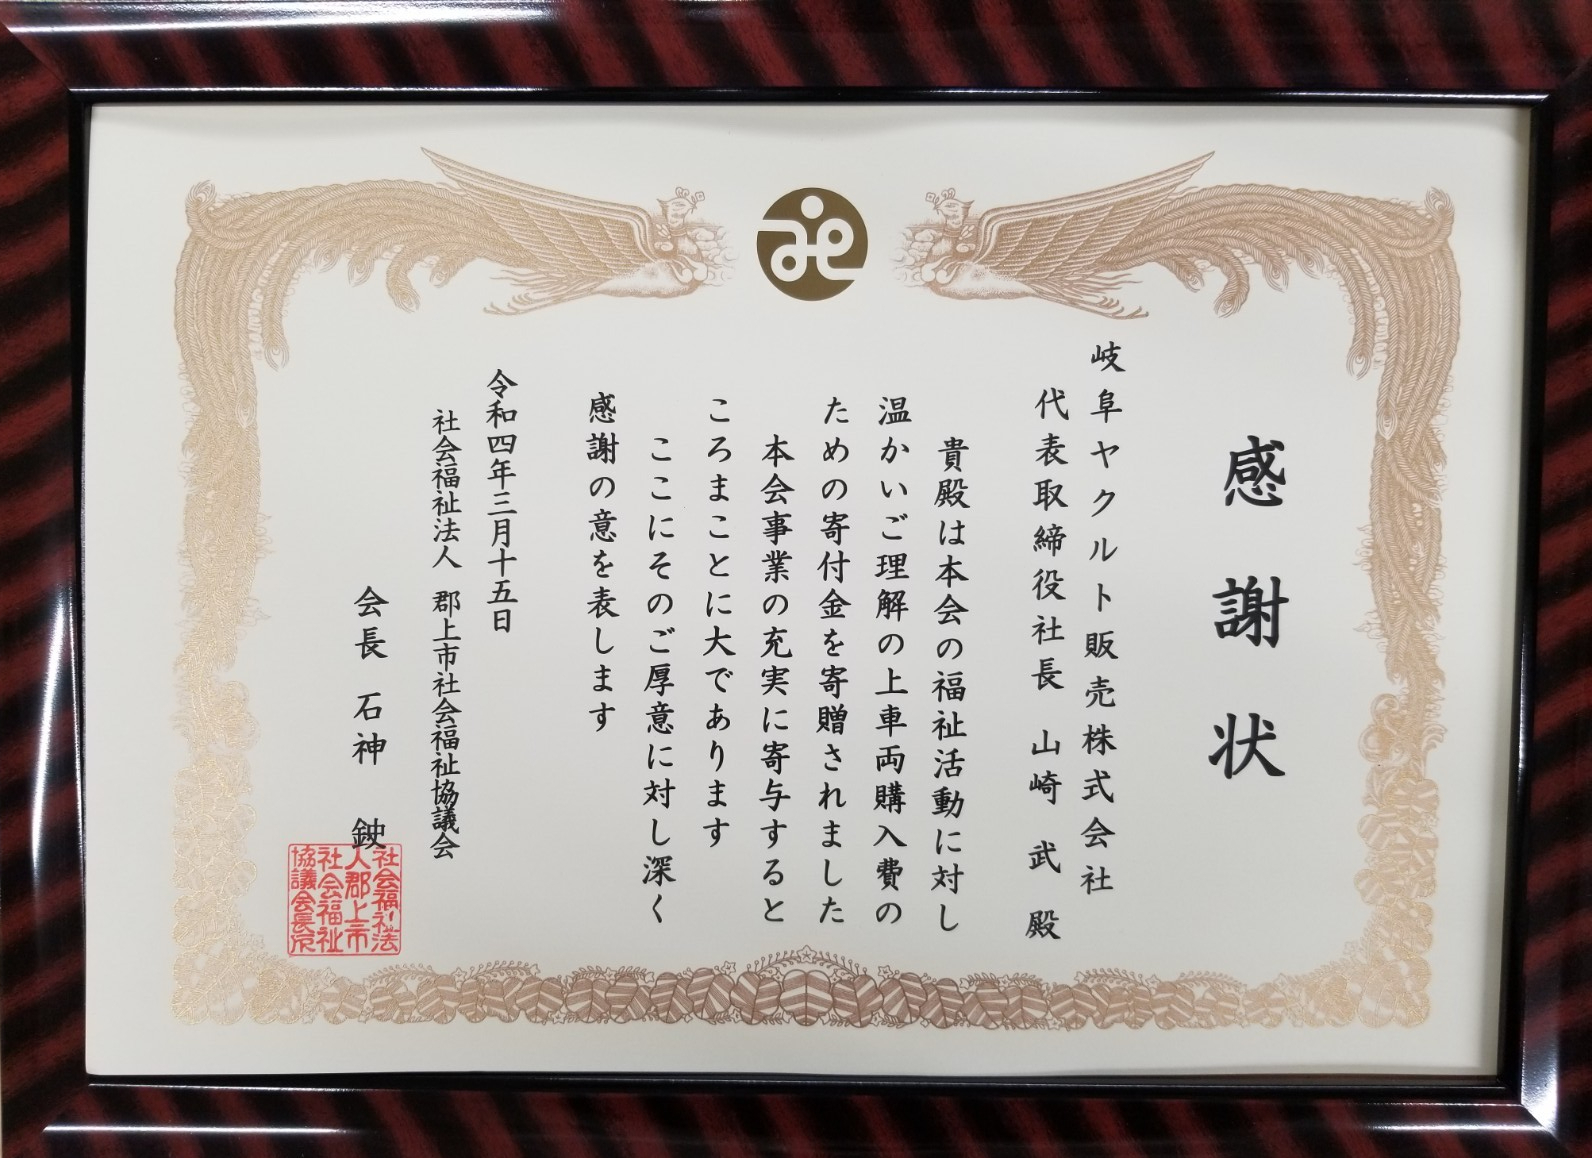 感謝状
岐阜ヤクルト販売株式会社
代表取締役社長 山崎 武 殿
貴殿は本会の福祉活動に対し
温かいご理解の上車両購入費の
ための寄付金を寄贈されました
本会事業の充実に寄与すると
ころまことに大であります
ここにそのご厚意に対し深く
感謝の意を表します
令和四年三月十五日
社会福祉法人 郡上市社会福祉協議会
会長 石神 鉠
社会福祉法
人郡上市
社会福祉
協議会長印